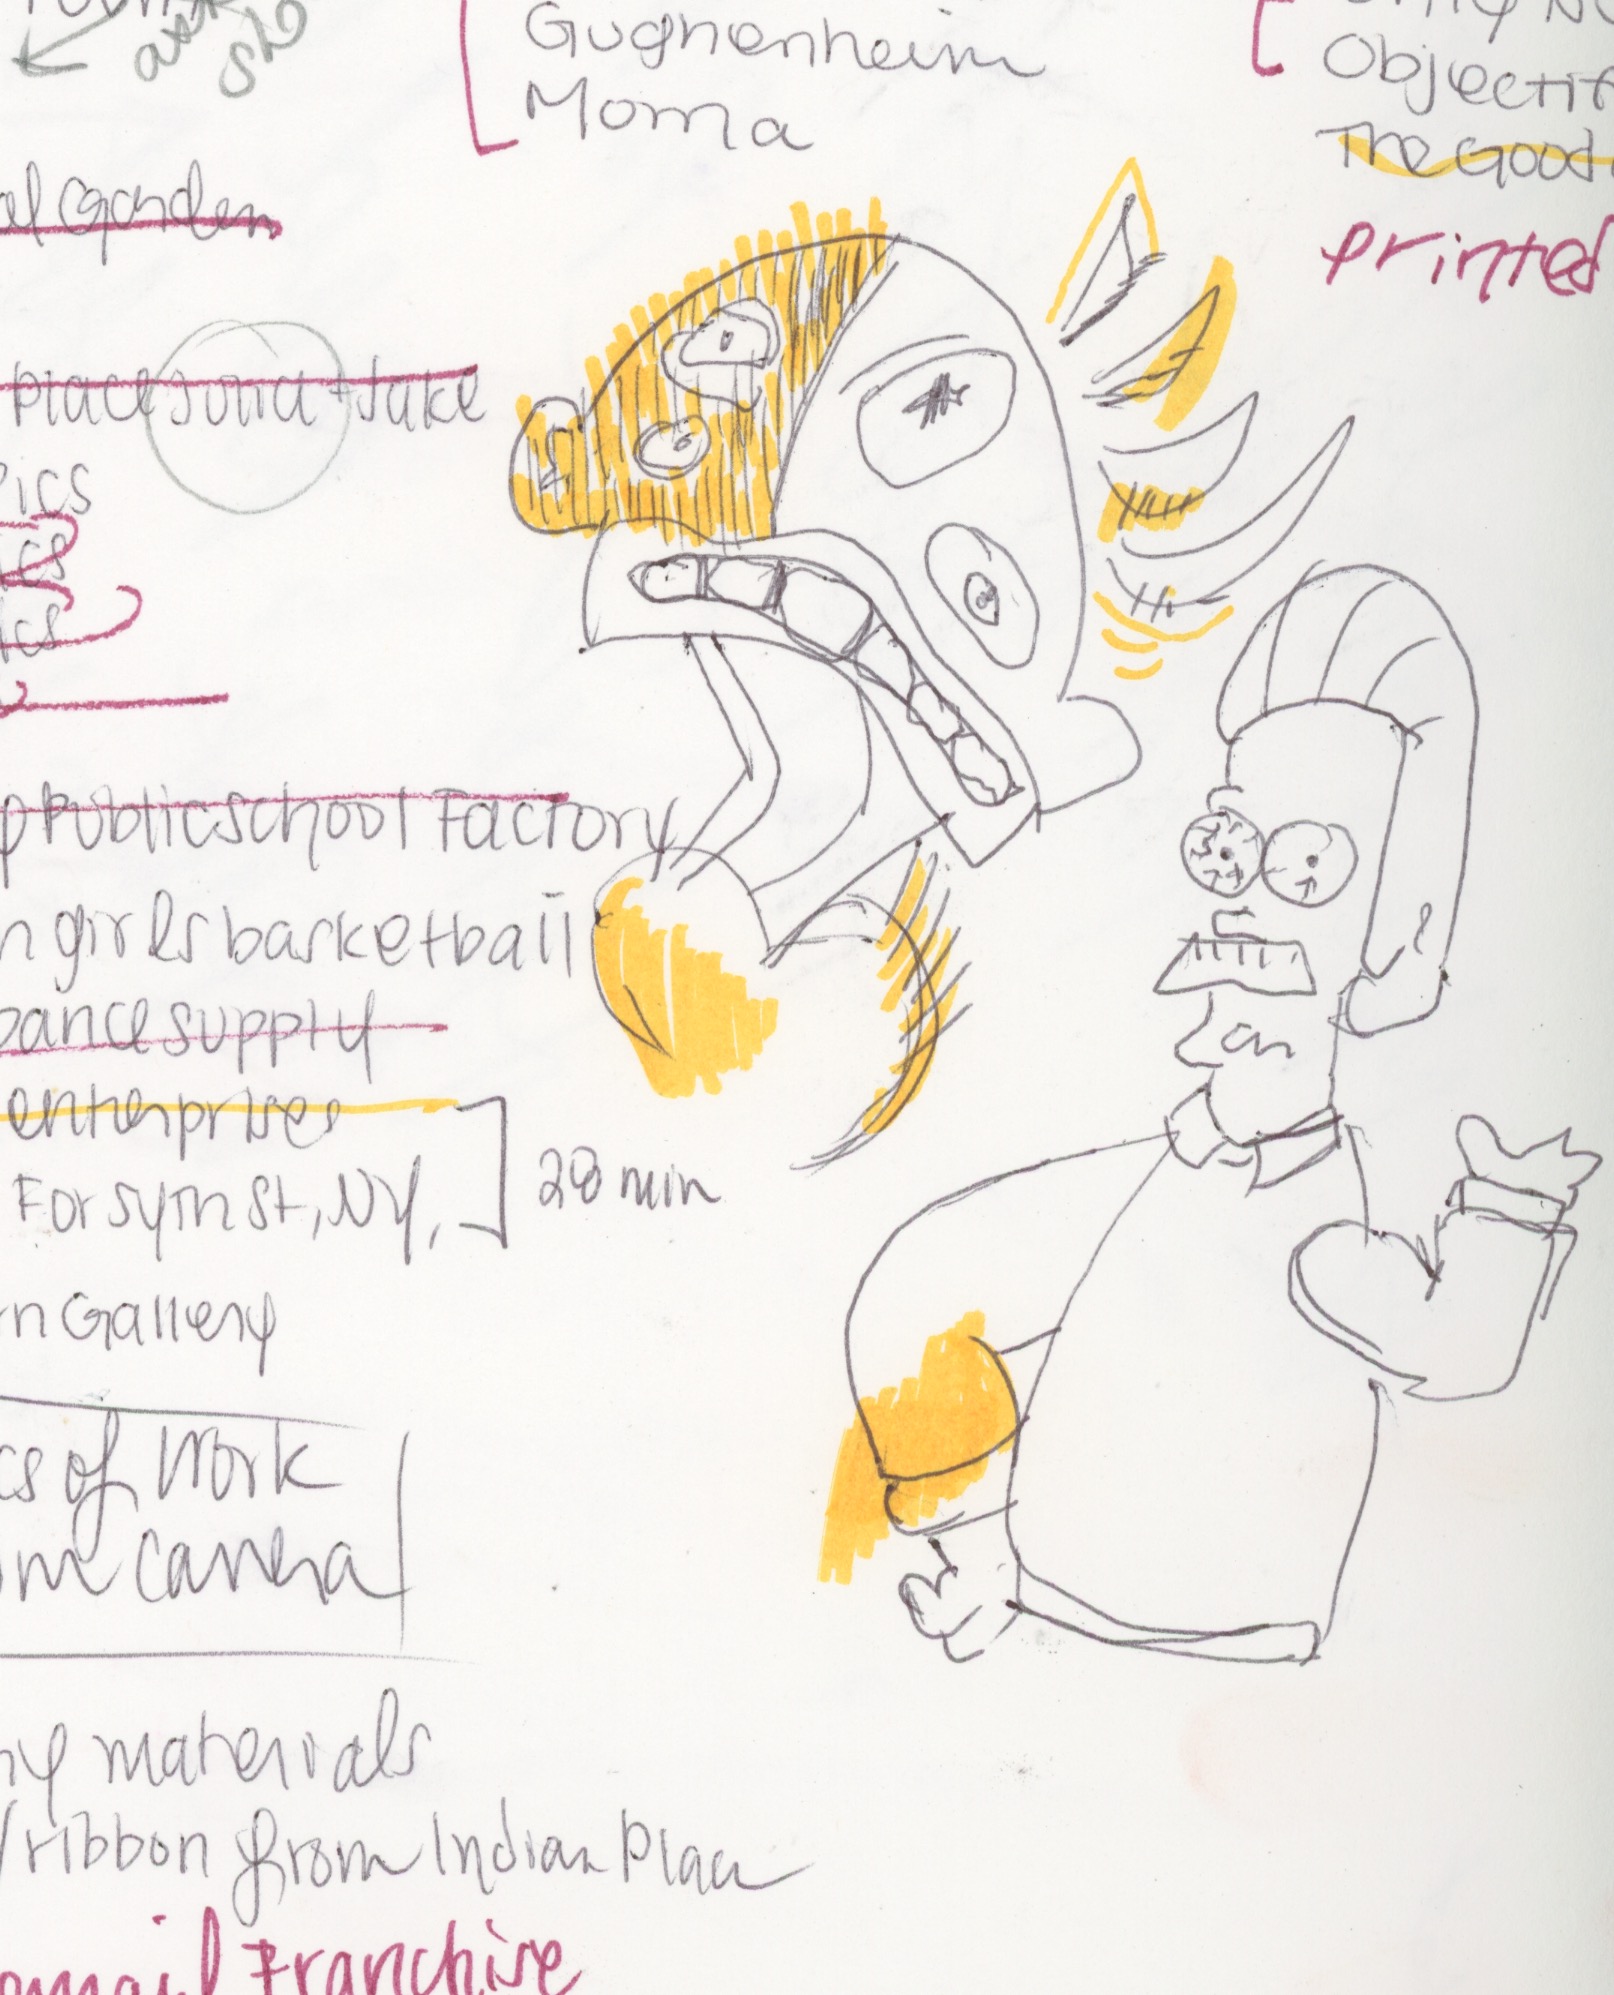 Gugnenheim
Moma
Objectif
The Good
printed
al Garden
place Julia + Jake
pics
ics
ics
Public school Factory
n girls basketball
Dance supply
enterprises
Forsyth St, NY,
28 min
n Gallery
cs of Work
om Camera
materials
/ribbon from Indian Place
Franchise